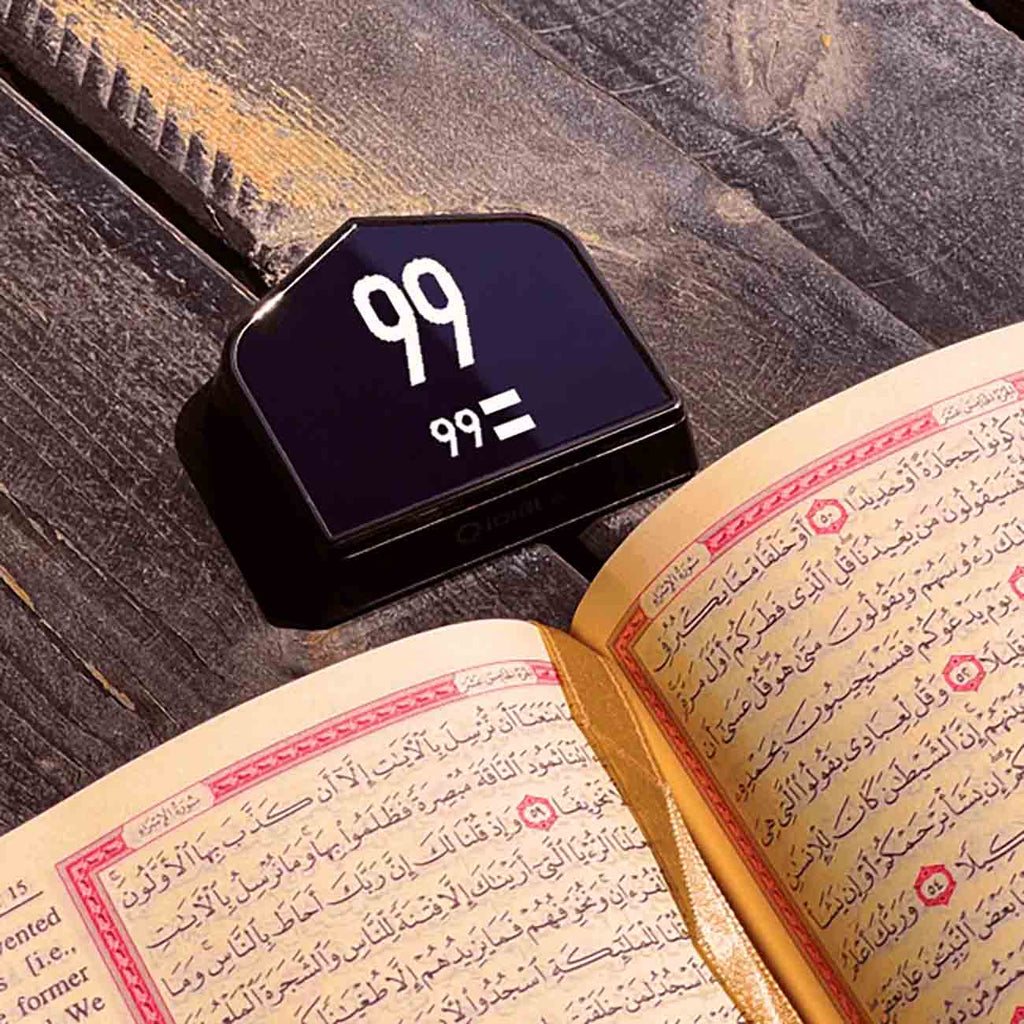 99
99=
الجزء الخامس عشر
سورة الإسراء
كُونُوا حِجَارَةً أَوْ حَدِيدًا ٥٠ أَوْ خَلْقًا مِّمَّا يَكْبُرُ
فَسَيَقُولُونَ مَن يُعِيدُنَا قُلِ الَّذِي فَطَرَكُمْ أَوَّلَ مَرَّةٍ
رُءُوسَهُمْ وَيَقُولُونَ مَتَىٰ هُوَ قُلْ عَسَىٰ أَن
يَوْمَ يَدْعُوكُمْ فَتَسْتَجِيبُونَ بِحَمْدِهِ
قَلِيلًا ٥٢ وَقُل لِّعِبَادِي يَقُولُوا الَّتِي هِيَ
بَيْنَهُمْ إِنَّ الشَّيْطَٰنَ كَانَ لِلْإِنسَٰنِ
إِن يَشَأْ يَرْحَمْكُمْ أَوْ إِن يَشَأْ
وَكِيلًا ٥٤ وَرَبُّكَ أَعْلَمُ
بَعْضَ النَّبِيِّينَ عَلَىٰ بَعْضٍ
الجزء الخامس عشر
سورة الإسراء
مَنَعَنَا أَن نُّرْسِلَ بِالْآيَٰتِ إِلَّا أَن كَذَّبَ بِهَا الْأَوَّلُونَ
ثَمُودَ النَّاقَةَ مُبْصِرَةً فَظَلَمُوا بِهَا وَمَا نُرْسِلُ بِالْآيَٰتِ
تَخْوِيفًا ٥٩ وَإِذْ قُلْنَا لَكَ إِنَّ رَبَّكَ أَحَاطَ بِالنَّاسِ وَمَا
جَعَلْنَا الرُّءْيَا الَّتِي أَرَيْنَٰكَ إِلَّا فِتْنَةً لِّلنَّاسِ وَالشَّجَرَةَ الْمَلْعُونَةَ
الْقُرْءَانِ وَنُخَوِّفُهُمْ فَمَا يَزِيدُهُمْ إِلَّا طُغْيَٰنًا
قُلْنَا لِلْمَلَٰئِكَةِ اسْجُدُوا
ءَأَسْجُدُ لِمَنْ خَلَقْتَ
15
[i.e.,
former
We